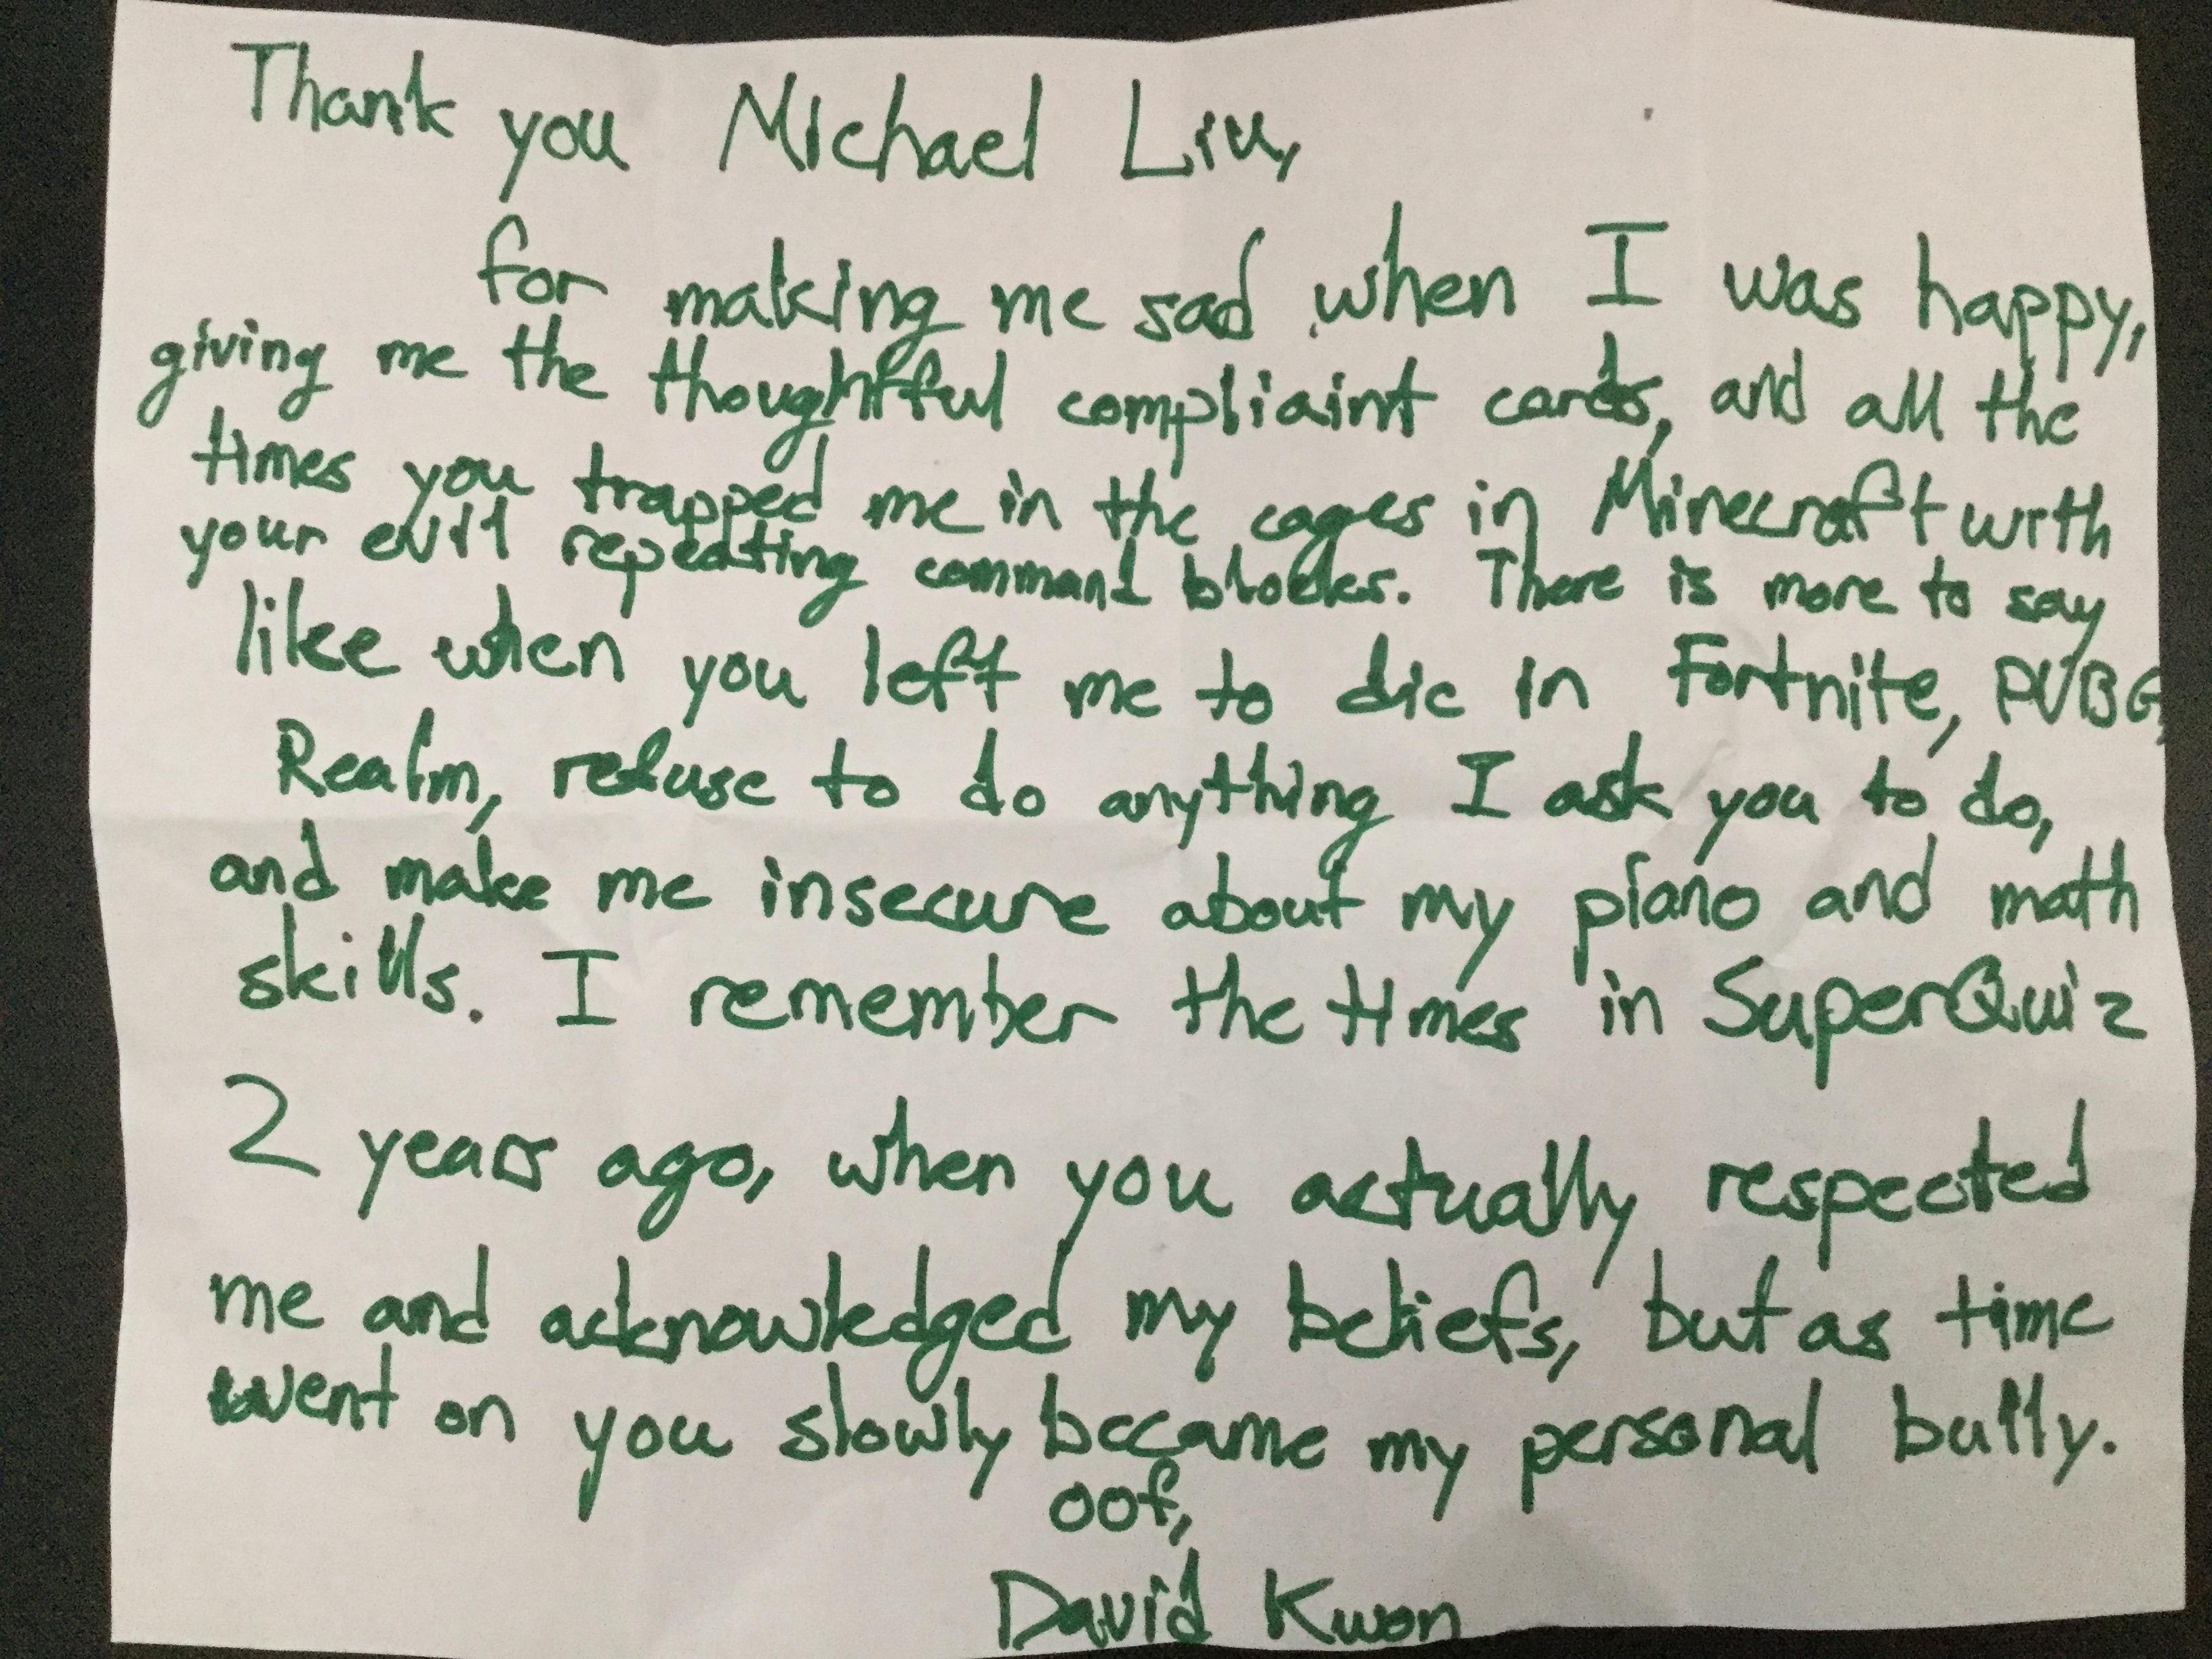 Thank you Michael Liu,
for making me sad when I was happy,
giving me the thoughtful compliaint cards, and all the
times you trapped me in the cages in Minecraft with
your evil repeating command blocks. There is more to say
like when you left me to die in Fortnite, PUBG,
Realm, refuse to do anything I ask you to do,
and make me insecure about my piano and math
skills. I remember the times in SuperQuiz
2 years ago, when you actually respected
me and acknowledged my beliefs, but as time
went on you slowly became my personal bully.
oof,
David Kwon